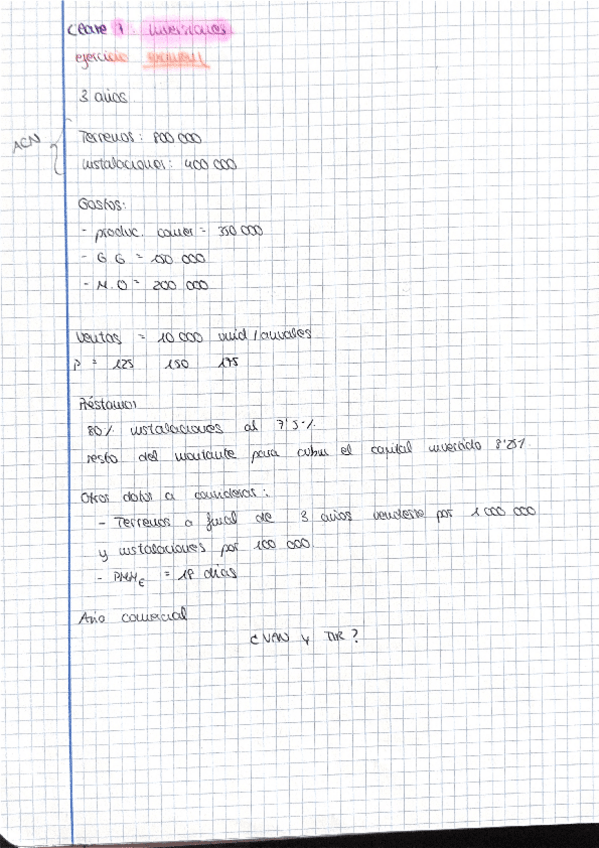 Clase 1: Inversiones
ejercicio
3 años
ACN
Terrenos: 800 000
instalaciones: 400 000
Gastos:
- produc. comer = 350 000
- G G = 100 000
- M.O = 200 000
Ventas = 10 000 unid / anuales
P = 125 150 175
Préstamos
80% instalaciones al 7'5%
resto del montante para cubrir el capital invertido 8'25%
Otros datos a considerar:
- Terrenos a final de 3 años venderse por 1 000 000
y instalaciones por 100 000
- PMME = 18 días
Año comercial
¿VAN y TIR?